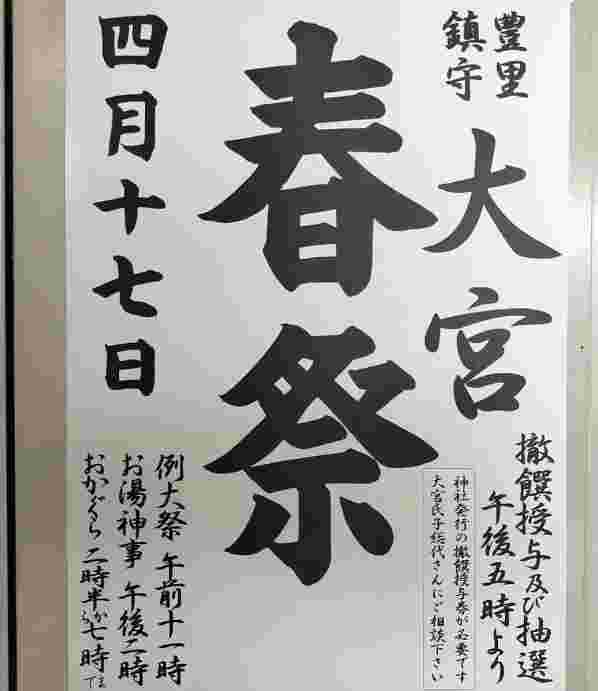 豊里
鎮守
大宮
撤饌授与及び抽選
午後五時より
神社発行の撤饌授与券が必要です
大宮氏子総代さんにご相談下さい
春祭
例大祭 午前十一時
お湯神事 午後二時
おかぐら 二時半から七時まで
四月十七日